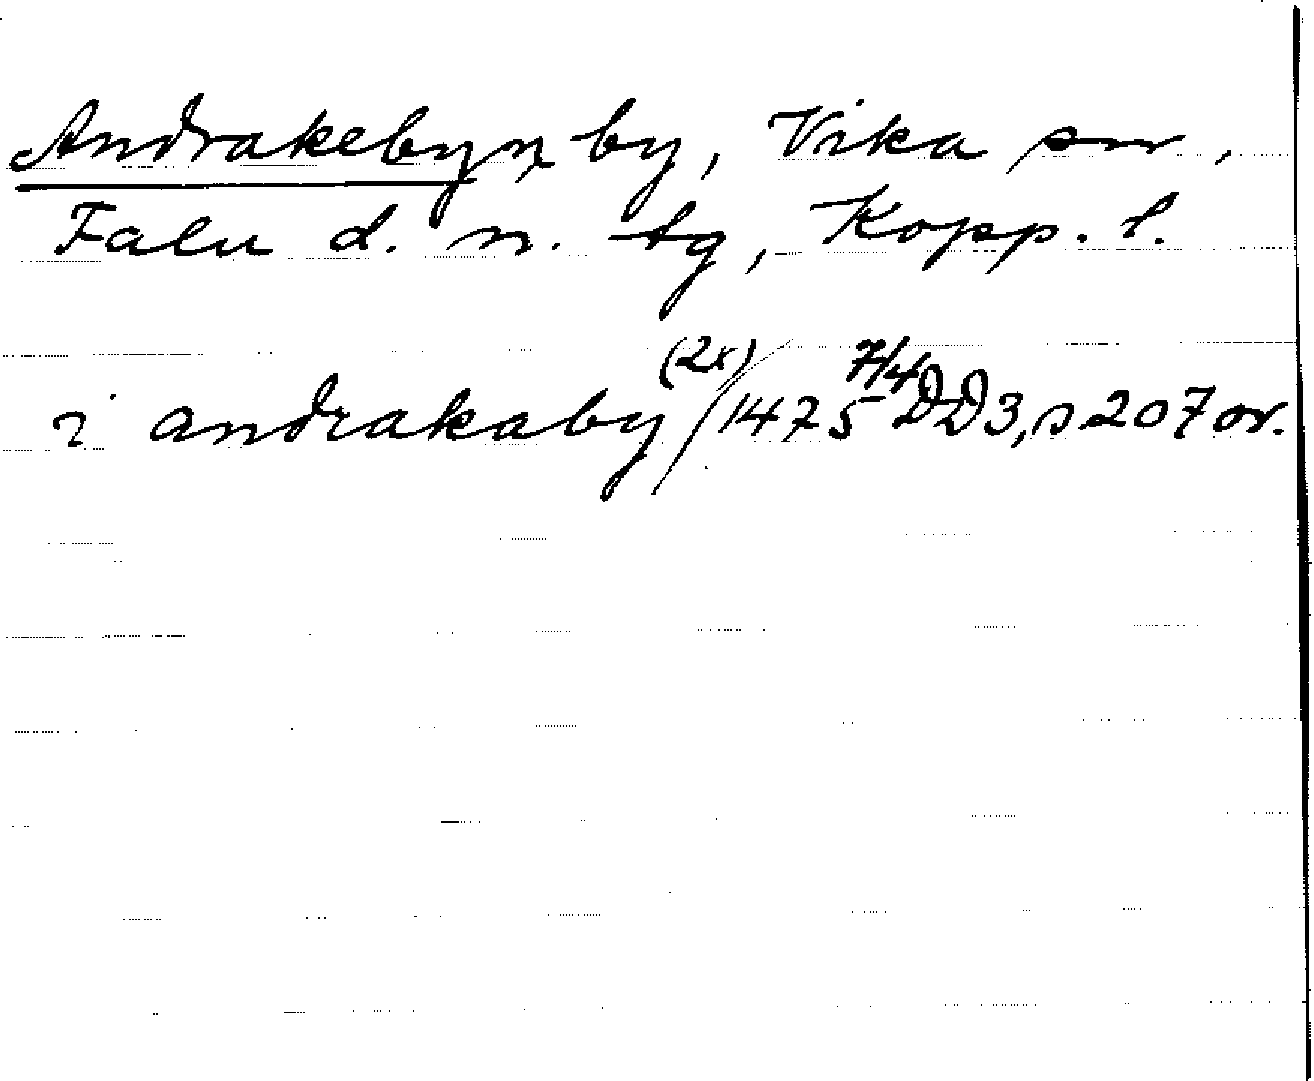 Andrakebyn by, Vika sn,
Falu d. n. tg, Kopp. l.
i andrakaby (2x) / 1475 7/4 DD3, s 207 or.